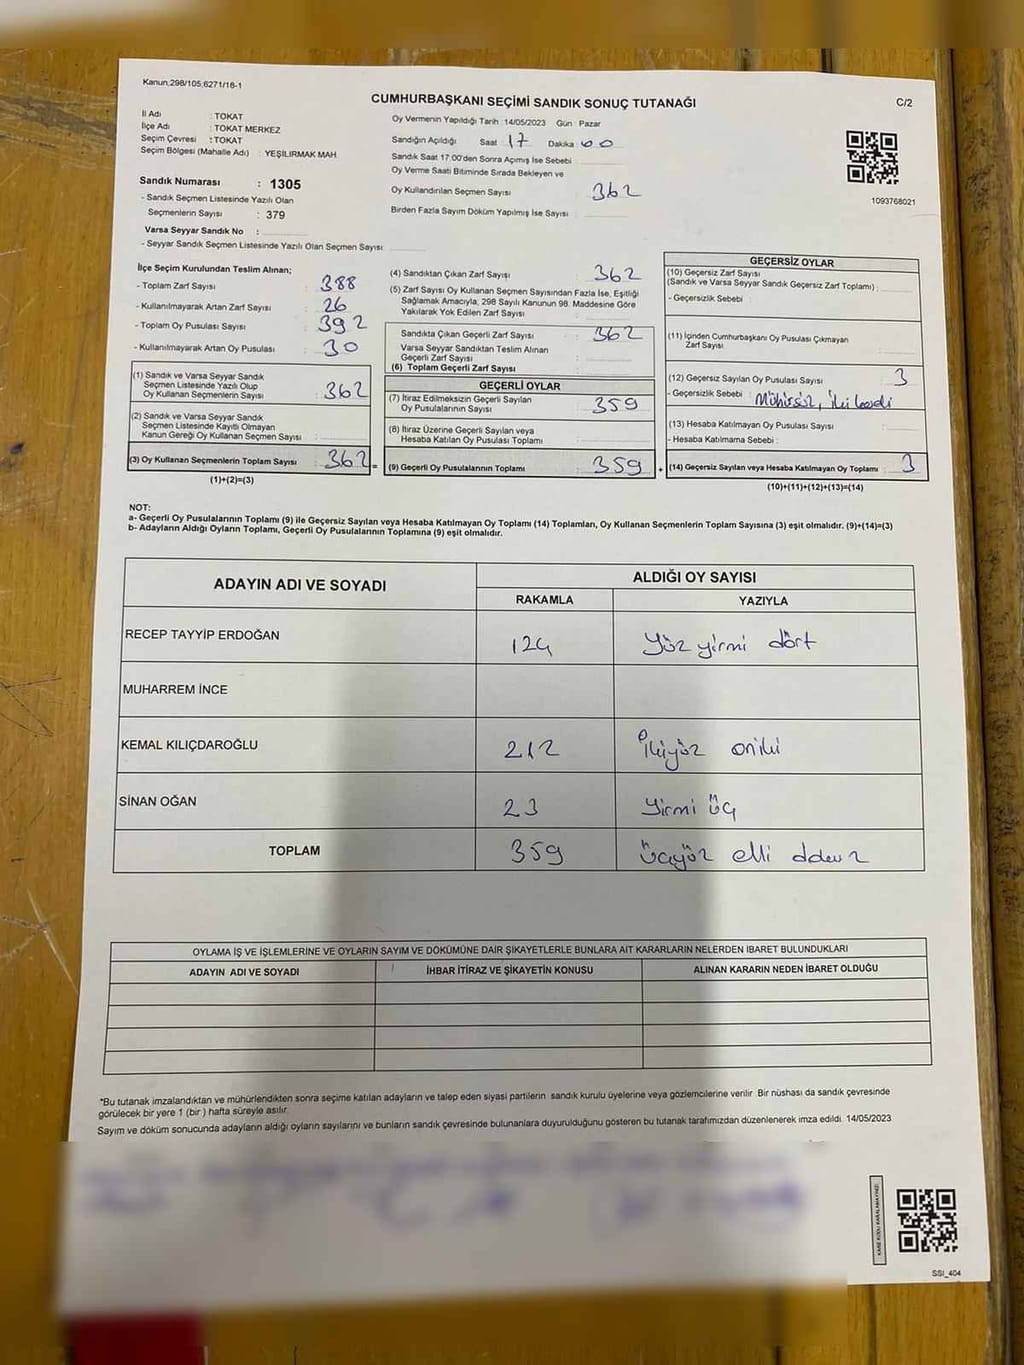 Kanun,298/105,6271/18-1
CUMHURBAŞKANI SEÇİMİ SANDIK SONUÇ TUTANAĞI
C/2
İl Adı : TOKAT
İlçe Adı : TOKAT MERKEZ
Seçim Çevresi : TOKAT
Seçim Bölgesi (Mahalle Adı) : YEŞİLIRMAK MAH
Sandık Numarası : 1305
- Sandık Seçmen Listesinde Yazılı Olan
Seçmenlerin Sayısı : 379
Varsa Seyyar Sandık No :
- Seyyar Sandık Seçmen Listesinde Yazılı Olan Seçmen Sayısı:
Oy Vermenin Yapıldığı Tarih :14/05/2023 Gün : Pazar
Sandığın Açıldığı Saat 17 Dakika 00
Sandık Saat 17:00'den Sonra Açımış İse Sebebi
Oy Verme Saati Bitiminde Sırada Bekleyen ve
Oy Kullandırılan Seçmen Sayısı 362
Birden Fazla Sayım Döküm Yapılmış İse Sayısı :
1093768021
İlçe Seçim Kurulundan Teslim Alınan;
- Toplam Zarf Sayısı : 388
- Kullanılmayarak Artan Zarf Sayısı : 26
- Toplam Oy Pusulası Sayısı : 392
- Kullanılmayarak Artan Oy Pusulası : 30
(1) Sandık ve Varsa Seyyar Sandık
Seçmen Listesinde Yazılı Olup
Oy Kullanan Seçmenlerin Sayısı : 362
(2) Sandık ve Varsa Seyyar Sandık
Seçmen Listesinde Kayıtlı Olmayan
Kanun Gereği Oy Kullanan Seçmen Sayısı :
(3) Oy Kullanan Seçmenlerin Toplam Sayısı : 362
(1)+(2)=(3)
(4) Sandıktan Çıkan Zarf Sayısı : 362
(5) Zarf Sayısı Oy Kullanan Seçmen Sayısından Fazla İse, Eşitliği
Sağlamak Amacıyla, 298 Sayılı Kanunun 98. Maddesine Göre
Yakılarak Yok Edilen Zarf Sayısı :
Sandıkta Çıkan Geçerli Zarf Sayısı : 362
Varsa Seyyar Sandıktan Teslim Alınan
Geçerli Zarf Sayısı :
(6) Toplam Geçerli Zarf Sayısı :
GEÇERLİ OYLAR
(7) İtiraz Edilmeksizin Geçerli Sayılan
Oy Pusulalarının Sayısı : 359
(8) İtiraz Üzerine Geçerli Sayılan veya
Hesaba Katılan Oy Pusulası Toplamı :
(9) Geçerli Oy Pusulalarının Toplamı : 359
GEÇERSİZ OYLAR
(10) Geçersiz Zarf Sayısı
(Sandık ve Varsa Seyyar Sandık Geçersiz Zarf Toplamı) :
- Geçersizlik Sebebi :
(11) İçinden Cumhurbaşkanı Oy Pusulası Çıkmayan
Zarf Sayısı :
(12) Geçersiz Sayılan Oy Pusulası Sayısı : 3
- Geçersizlik Sebebi : Mühürsüz, iki
(13) Hesaba Katılmayan Oy Pusulası Sayısı :
- Hesaba Katılmama Sebebi :
(14) Geçersiz Sayılan veya Hesaba Katılmayan Oy Toplamı : 3
(10)+(11)+(12)+(13)=(14)
NOT:
a- Geçerli Oy Pusulalarının Toplamı (9) ile Geçersiz Sayılan veya Hesaba Katılmayan Oy Toplamı (14) Toplamları, Oy Kullanan Seçmenlerin Toplam Sayısına (3) eşit olmalıdır. (9)+(14)=(3)
b- Adayların Aldığı Oyların Toplamı, Geçerli Oy Pusulalarının Toplamına (9) eşit olmalıdır.
ADAYIN ADI VE SOYADI
ALDIĞI OY SAYISI
RAKAMLA YAZIYLA
RECEP TAYYİP ERDOĞAN 124 Yüz yirmi dört
MUHARREM İNCE
KEMAL KILIÇDAROĞLU 212 İkiyüz oniki
SİNAN OĞAN 23 Yirmi üç
TOPLAM 359 Üçyüz elli
OYLAMA İŞ VE İŞLEMLERİNE VE OYLARIN SAYIM VE DÖKÜMÜNE DAİR ŞİKAYETLERLE BUNLARA AİT KARARLARIN NELERDEN İBARET BULUNDUKLARI
ADAYIN ADI VE SOYADI İHBAR İTİRAZ VE ŞİKAYETİN KONUSU ALINAN KARARIN NEDEN İBARET OLDUĞU
*Bu tutanak imzalandıktan ve mühürlendikten sonra seçime katılan adayların ve talep eden siyasi partilerin sandık kurulu üyelerine veya gözlemcilerine verilir. Bir nüshası da sandık çevresinde
görülecek bir yere 1 (bir ) hafta süreyle asılır.
Sayım ve döküm sonucunda adayların aldığı oyların sayılarını ve bunların sandık çevresinde bulunanlara duyurulduğunu gösteren bu tutanak tarafımızdan düzenlenerek imza edildi. 14/05/2023
KARE KODU KARALAMAYINIZ!
SSI_404